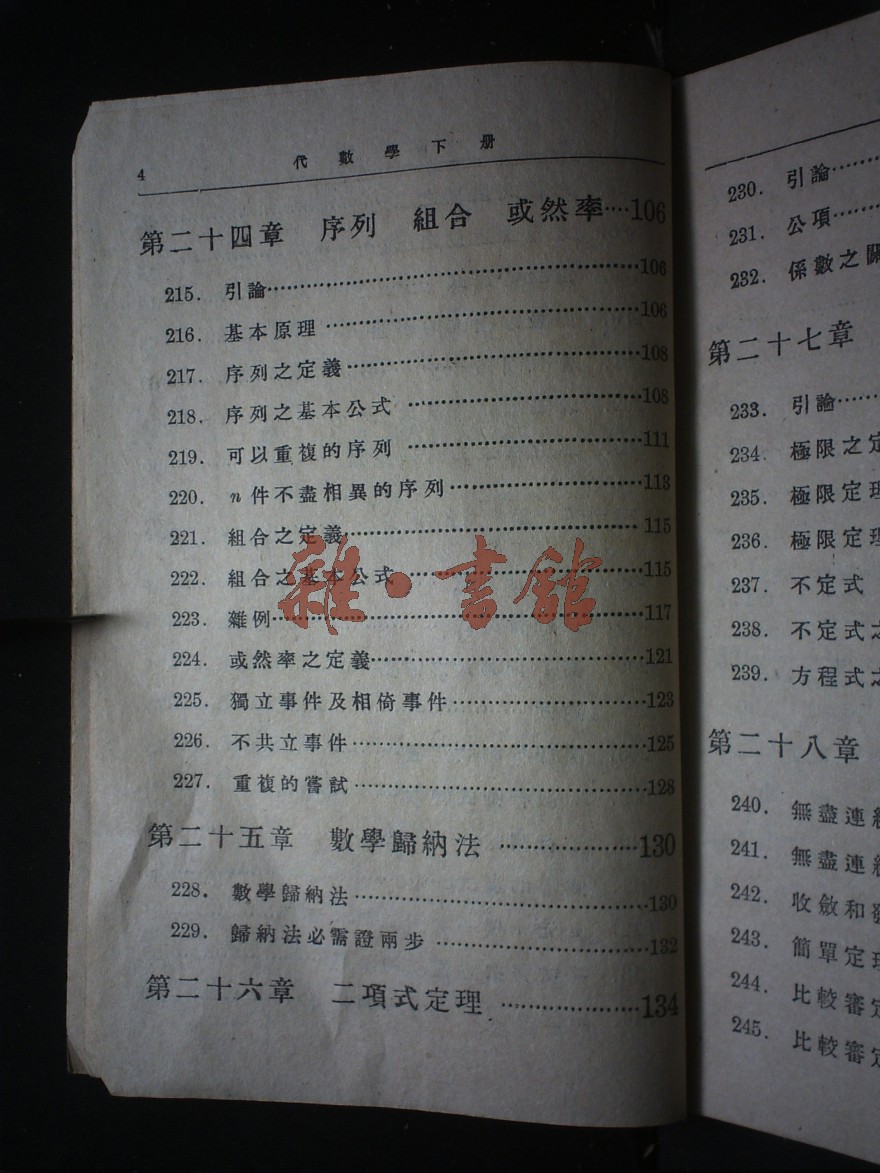 4 代數學下册
第二十四章 序列 組合 或然率····106
215. 引論····106
216. 基本原理····106
217. 序列之定義····108
218. 序列之基本公式····108
219. 可以重複的序列····111
220. n件不盡相異的序列····113
221. 組合之定義····115
222. 組合之基本公式····115
223. 雜例····117
224. 或然率之定義····121
225. 獨立事件及相倚事件····123
226. 不共立事件····125
227. 重複的嘗試····128
第二十五章 數學歸納法····130
228. 數學歸納法····130
229. 歸納法必需證兩步····132
第二十六章 二項式定理····134
雜·書館
230. 引論····
231. 公項····
232. 係數之關
第二十七章
233. 引論····
234. 極限之定
235. 極限定理
236. 極限定理
237. 不定式
238. 不定式之
239. 方程式之
第二十八章
240. 無盡連級
241. 無盡連級
242. 收斂和
243. 簡單定理
244. 比較審定
245. 比較審定